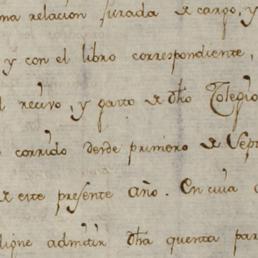 na relacion jurada de cargo, y
y con el libro correspondiente,
l recivo, y gasto de dho Colegio
corrido desde primero de Sept
de este presente año. En cuia
digne admitir dha quenta par